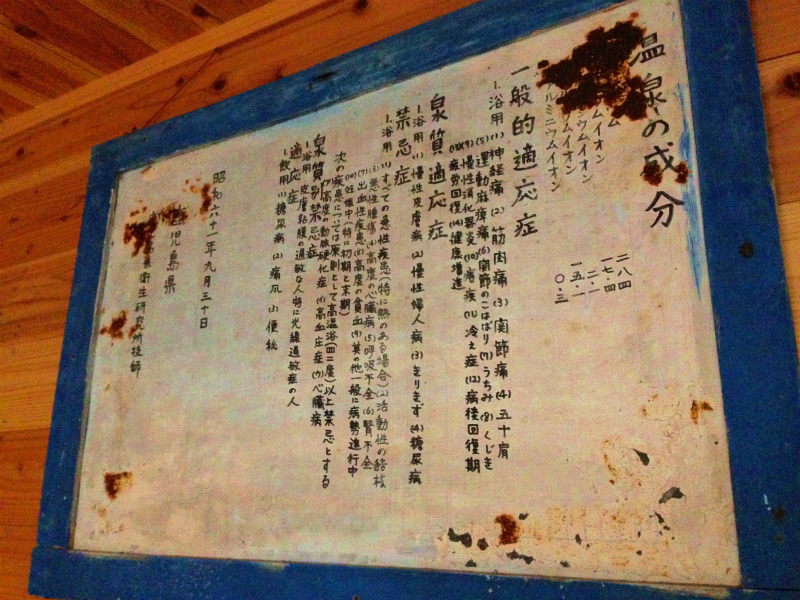 温泉の成分
ム
ムイオン 二八四
ウムイオン 一七・四
ウムイオン 二・一
ムイオン 一五・一
アルミニウムイオン 〇・三
一般的適応症
1.浴用(1)神経痛(2)筋肉痛(3)関節痛(4)五十肩
(5)運動麻痺(6)関節のこはばり(7)うちみ(8)くじき
(9)慢性消化器炎(10)痔疾(11)冷え症(12)病後回復期
(13)疲労回復(14)健康増進
泉質適応症
1.浴用(1)慢性皮膚病(2)慢性婦人病(3)きりきず(4)糖尿病
禁忌症
1.浴用(1)すべての急性疾患(特に熱のある場合)(2)活動性の結核
(3)悪性腫瘍(4)高度の心臓病(5)呼吸不全(6)腎不全
(7)出血性疾患(8)高度の貧血(9)其の他一般に病勢進行中
(10)妊娠中(特に初期と末期)
次の疾患については原則として高温浴(四二度)以上禁忌とする
(1)高度の動脈硬化症(2)高血圧症(3)心臓病
泉質別禁忌症
浴用 皮膚粘膜の過敏な人特に光線過敏症の人
適応症
1.飲用(1)糖尿病(2)痛風(3)便秘
昭和六十一年九月三十日
児島県
衛生研究所技師